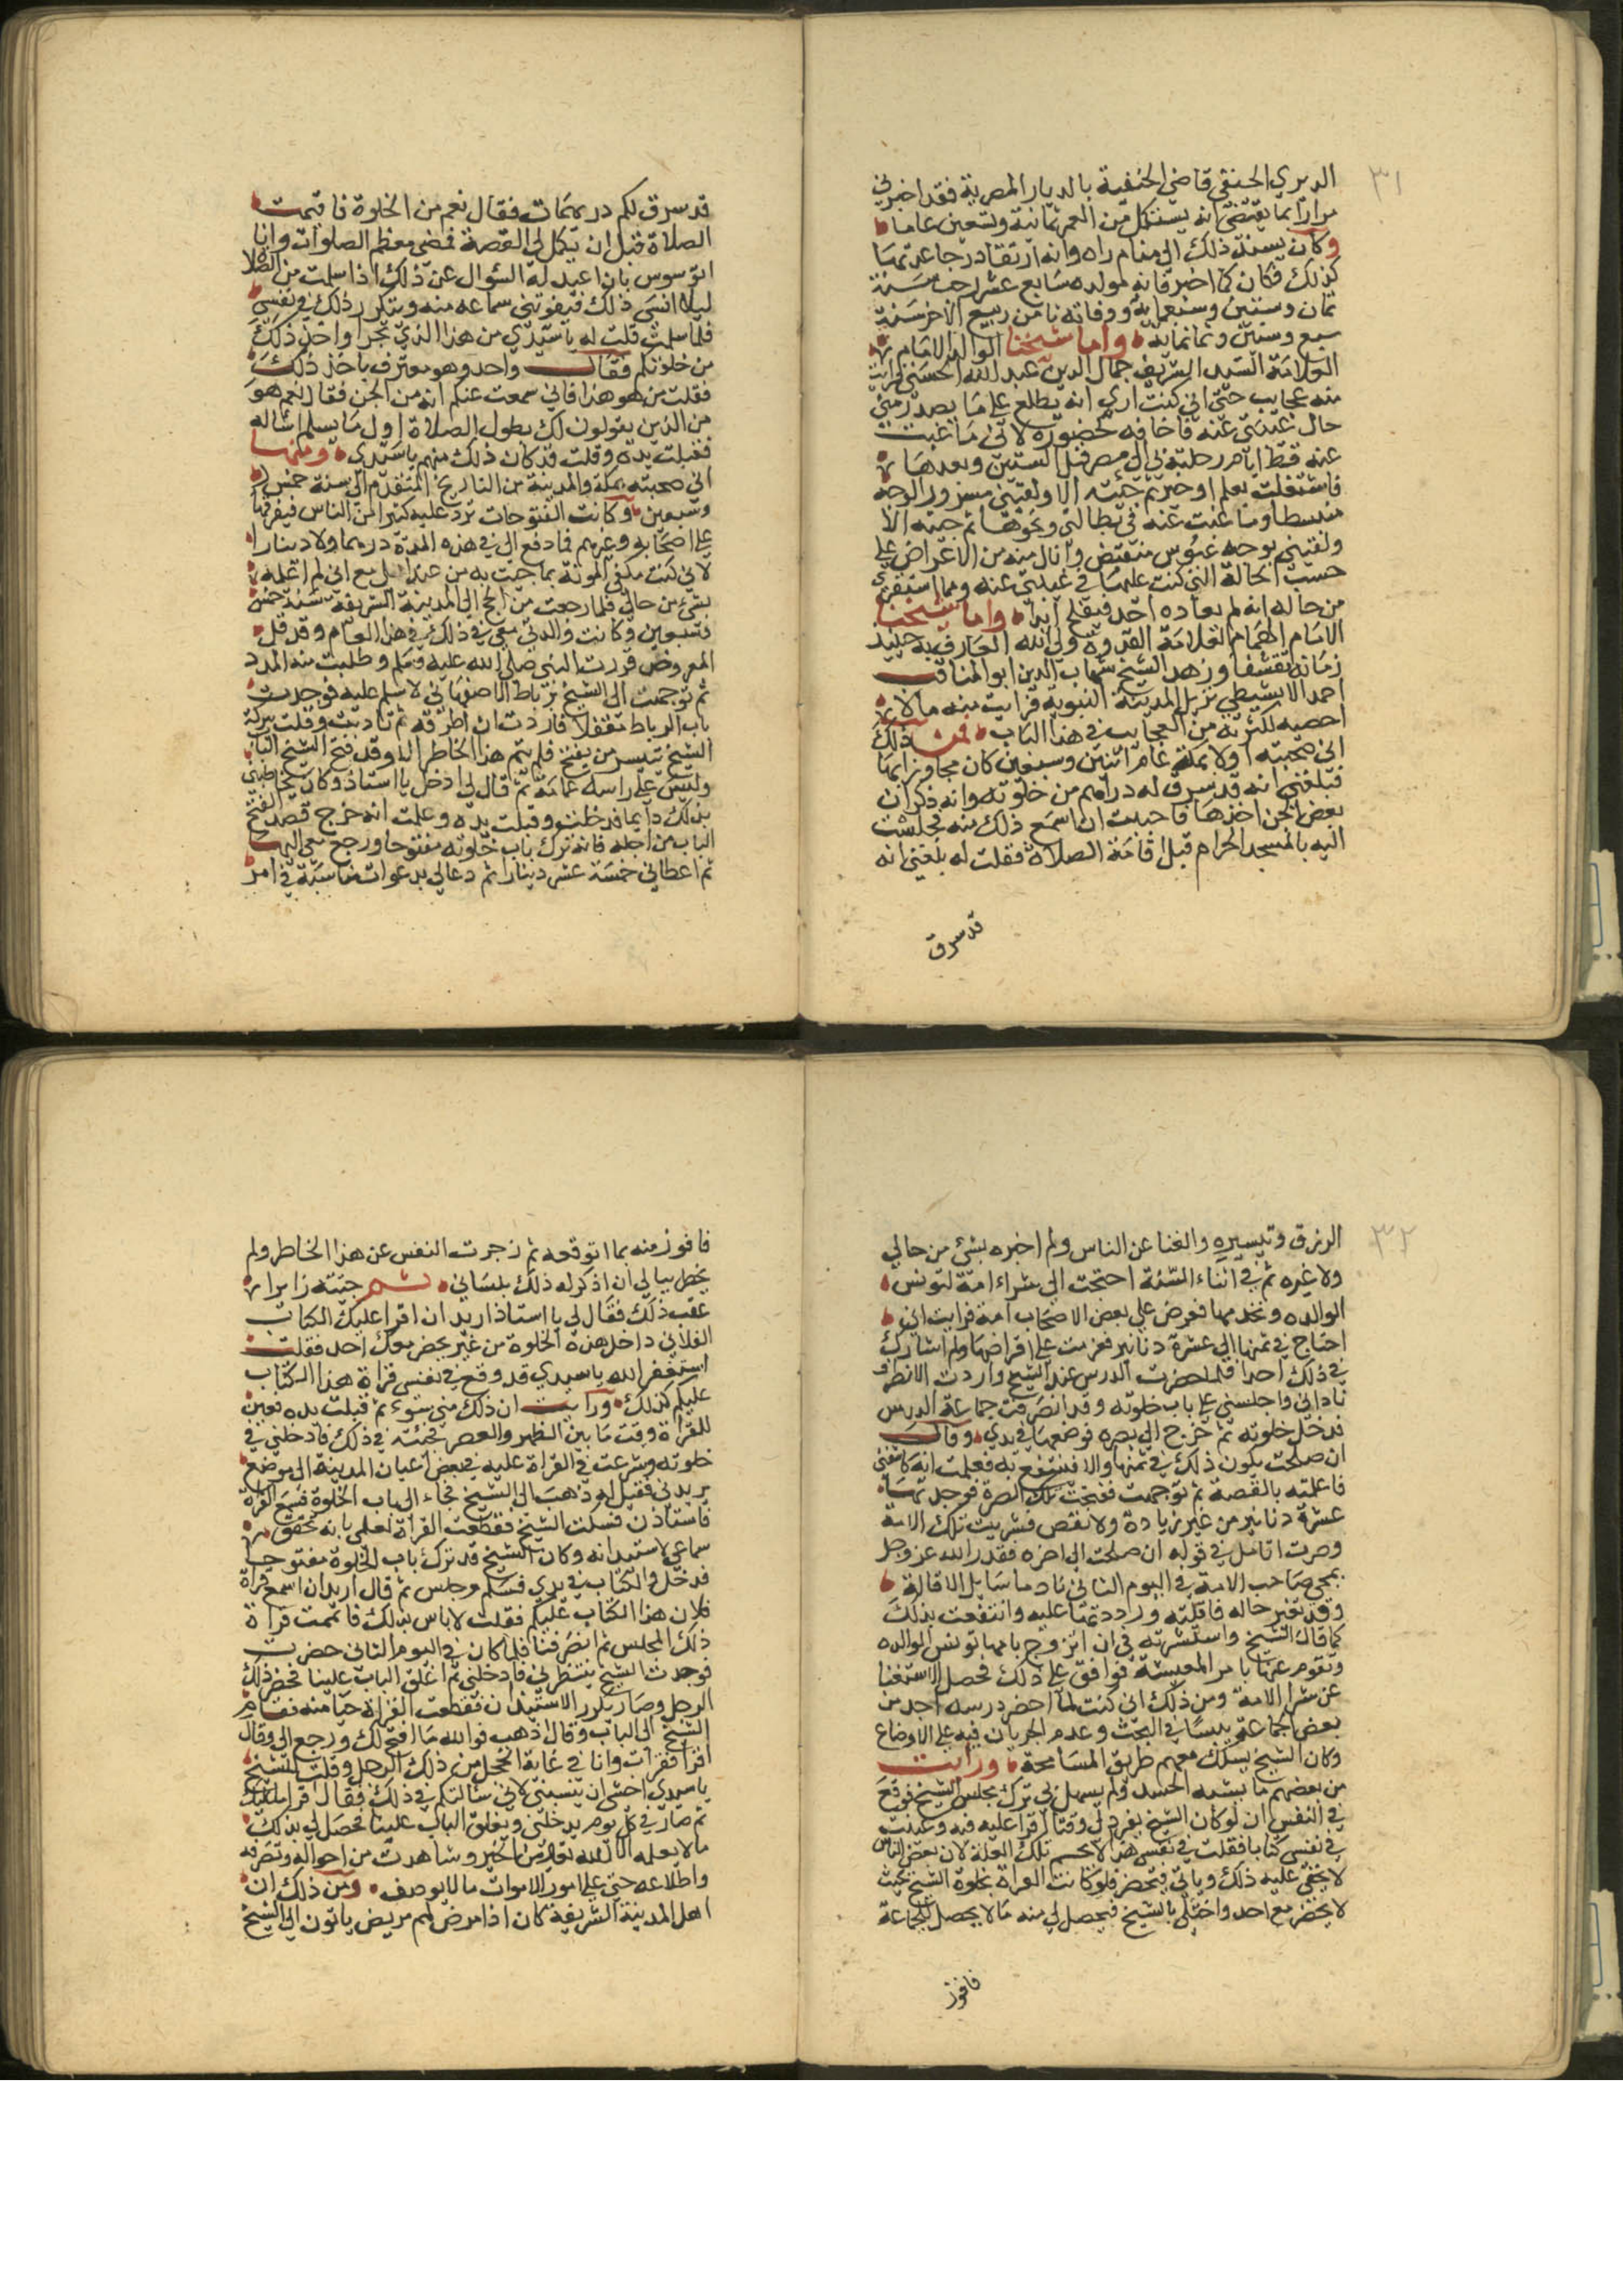 ٣١
الديري الحنفي قاضي الحنفية بالديار المصرية فقد اخبرني
مرارا بما يقتضي انه يستكمل من العمر ثمانية وتسعين عاما
وكان يسند ذلك الى منام راه وانه ارتقا درجا عدتها
كذلك فكان كما اخبر فانه مولده سابع عشر رجب سنة
ثمان وستين وسبعماية ووفاته تامن ربيع الاخر سنة
سبع وستين وثمانماية واما شيخنا الوالد الامام
العلامة السيد الشريف جمال الدين عبد الله الحسني فرايت
منه عجايب حتى اني كنت اري انه يطلع على ما يصدر مني
حال غيبتي عنه فاخافه كحضوره لاني ما غبت
عنه قط ايام رحلتي الى مصر قبل الستين وبعدها
فاشتغلت بعلم او خير ثم جئته الا ولقيني مسرور الوجه
منبسطا وما غبت عنه في بطالتي ونحوها ثم جيته الا
ولقيني بوجه عبوس منقبض وانال منه من الاعراض على
حسب الحالة التي كنت عليها في غيبتي عنه ومما استقرئ
من حاله انه لم يعاده احد فيفلح ابدا واما شيخنا
الامام الهمام العلامة القدوة ولي الله العارف به جنيد
زمانه تقشفا وزهدا الشيخ شهاب الدين ابو المناقب
احمد الابشيطي نزيل المدينة النبوية فرايت منه ما لا
احصيه لكثرته من العجايب في هذا الباب فمن ذلك
اني صحبته اولا بمكة عام اثنين وسبعين كان مجاورا بها
فبلغني انه قد سرق له دراهم من خلوته وانه ذكر ان
بعض الجن اخذها فاحببت ان اسمع ذلك منه فجلست
اليه بالمسجد الحرام قبل اقامة الصلاة فقلت له بلغني انه
قد سرق
قد سرق لكم دريهمات فقال نعم من الخلوة فاقيمت
الصلاة قبل ان يكمل لي القصة فمضى معظم الصلوات وانا
اتوسوس بان اعيد له السؤال عن ذلك اذا سلمت من الصلاة
ليلا انسى ذلك فيفوتني سماعه منه ويتكرر ذلك في نفسي
فلما سلمت قلت له يا سيدي من هذا الذي تجرا واخذ ذلك
من خلوتكم فقال واحد وهو معترف باخذ ذلك
فقلت من هو هذا فاني سمعت عنكم انه من الجن فقال نعم هو
من الذين يقولون لك بطول الصلاة اول ما يسلم اساله
فقبلت يده وقلت قد كان ذلك منهم يا سيدي ومنها
اني صحبته بمكة والمدينة من التاريخ المتقدم الى سنة خمس
وسبعين وكانت الفتوحات ترد عليه كثيرا من الناس فيفرقها
على اصحابه وغيرهم فما دفع الي في هذه المدة درهما ولا دينارا
لاني كنت مكفي المونة بما جيت به من عند اهلي مع اني لم اعلمه
بشئ من حالي فلما رجعت من الحج الى المدينة الشريفة سنة خمس
وسبعين وكانت والدتي معي في ذلك في هذا العام وقد قل
المعروض فزرت النبي صلى الله عليه وسلم وطلبت منه المدد
ثم توجهت الى الشيخ برباط الاصفهاني لاسلم عليه فوجدت
باب الرباط مقفلا فاردت ان اطرقه ثم تادبت وقلت ببركة
الشيخ تيسر من يفتح فلم يتم هذا الخاطر الا وقد فتح الشيخ الباب
وليس على راسه عمامة ثم قال لي ادخل يا استاذ وكان يخاطبني
بذلك دايما فدخلت وقبلت يده وعلمت انه خرج قصد فتح
الباب من اجله فانه ترك باب خلوته مفتوحا ورجع معي اليها
ثم اعطاني خمسة عشر دينارا ثم دعا لي بدعوات مناسبة في امر
٣٢
الرزق وتيسيره والغنا عن الناس ولم اخبره بشئ من حالي
ولا غيره ثم في اثناء السنة احتجت الى شراء امة لتونس
الوالده وتخدمها فعرض علي بعض الاصحاب امة فرايت اني
احتاج في ثمنها الى عشرة دنانير فعزمت على اقراضها ولم اشارك
في ذلك احدا فلما حضرت الدرس عند الشيخ واردت الانصراف
ناداني واجلسني على باب خلوته وقد انصرفت جماعة الدرس
فدخل خلوته ثم خرج الي بصره فوضعها في يدي وقال
ان صلحت يكون ذلك في ثمنها والا فننتفع به فعلمت انه كاشفني
فاعلمته بالقصة ثم توجهت ففتحت تلك الصرة فوجدتها
عشرة دنانير من غير زيادة ولا نقص فشريت تلك الامة
وصرت اتامل في قوله ان صلحت الى اخره فقدر الله عز وجل
بمجي صاحب الامة في اليوم الثاني نادما سايل الاقالة
وقد تغير حاله فاقلته ورددتها عليه وانتفعت بذلك
كما قال الشيخ واستشرته في ان اتزوج بامها تونس الوالده
وتقوم عنها بامر المعيشة فوافق على ذلك فحصل الاستغنا
عن شرا الامة ومن ذلك اني كنت لما احضر درسه اجد من
بعض الجماعة يبسا في البحث وعدم الجريان فيه على الاوضاع
وكان الشيخ يسلك معهم طريق المسامحة ورايت
من بعضهم ما يشبه الحسد ولم يسهل لي ترك مجلس الشيخ فوقع
في النفس ان لو كان الشيخ يفرد لي وقتا اقرا عليه فيه وعينت
في نفسي كتابا فقلت في نفسي هذا لا يحسم تلك العلة لان بعض الناس
لا يخفى عليه ذلك وياتي فيحضر فلو كانت القراة بخلوة الشيخ بحيث
لا يحضر مع احد واختلي بالشيخ فيحصل لي منه ما لا يحصل للجماعة
فافوز
فافوز منه بما اتوقعه ثم زجرت النفس عن هذا الخاطر ولم
يخطر ببالي ان اذكر له ذلك بلساني ثم جيته زايرا
عقب ذلك فقال لي يا استاذ اريد ان اقرا عليك الكتاب
الفلاني داخل هذه الخلوة من غير يحضر معك احد فقلت
استغفر الله يا سيدي قد وقع في نفسي قراة هذا الكتاب
عليكم كذلك ورايت ان ذلك مني سوء ثم قبلت يده فعين
للقراة وقت ما بين الظهر والعصر فجئته في ذلك فادخلني في
خلوته وشرعت في القراة عليه فبعض اعيان المدينة الى موضع
يريدني فقيل له ذهب الى الشيخ فجاء الى باب الخلوة فسمع القراة
فاستاذن فسكت الشيخ فقطعت القراة لعلمي بانه تحقق
سماعي لاستيذانه وكان الشيخ قد ترك باب الخلوة مفتوحا
فدخل والكتاب في يدي فسلم وجلس ثم قال اريد ان اسمع قراة
فلان هذا الكتاب عليكم فقلت لا باس بذلك فاتممت قراة
ذلك المجلس ثم انصرفنا فلما كان في اليوم الثاني حضرت
فوجدت الشيخ ينتظرني فادخلني ثم اغلق الباب علينا فحضر ذلك
الرجل وصار يكرر الاستيذان فقطعت القراة حيا منه فقام
الشيخ الى الباب وقال اذهب فوالله ما افتح لك ورجع الي وقال
اقرا فقرات وانا في غاية الخجل من ذلك الرجل وقلت للشيخ
يا سيدي اخشى ان ينسبني لاني سالتكم في ذلك فقال اقرا ما عليك
ثم صار في كل يوم يدخلني ويغلق الباب علينا فحصل لي بذلك
ما لا يعلمه الا الله تعالى من الخير وشاهدت من احواله وتصرفه
واطلاعه حتى على امور الاموات ما لا يوصف ومن ذلك ان
اهل المدينة الشريفة كان اذا مرض لهم مريض ياتون الى الشيخ